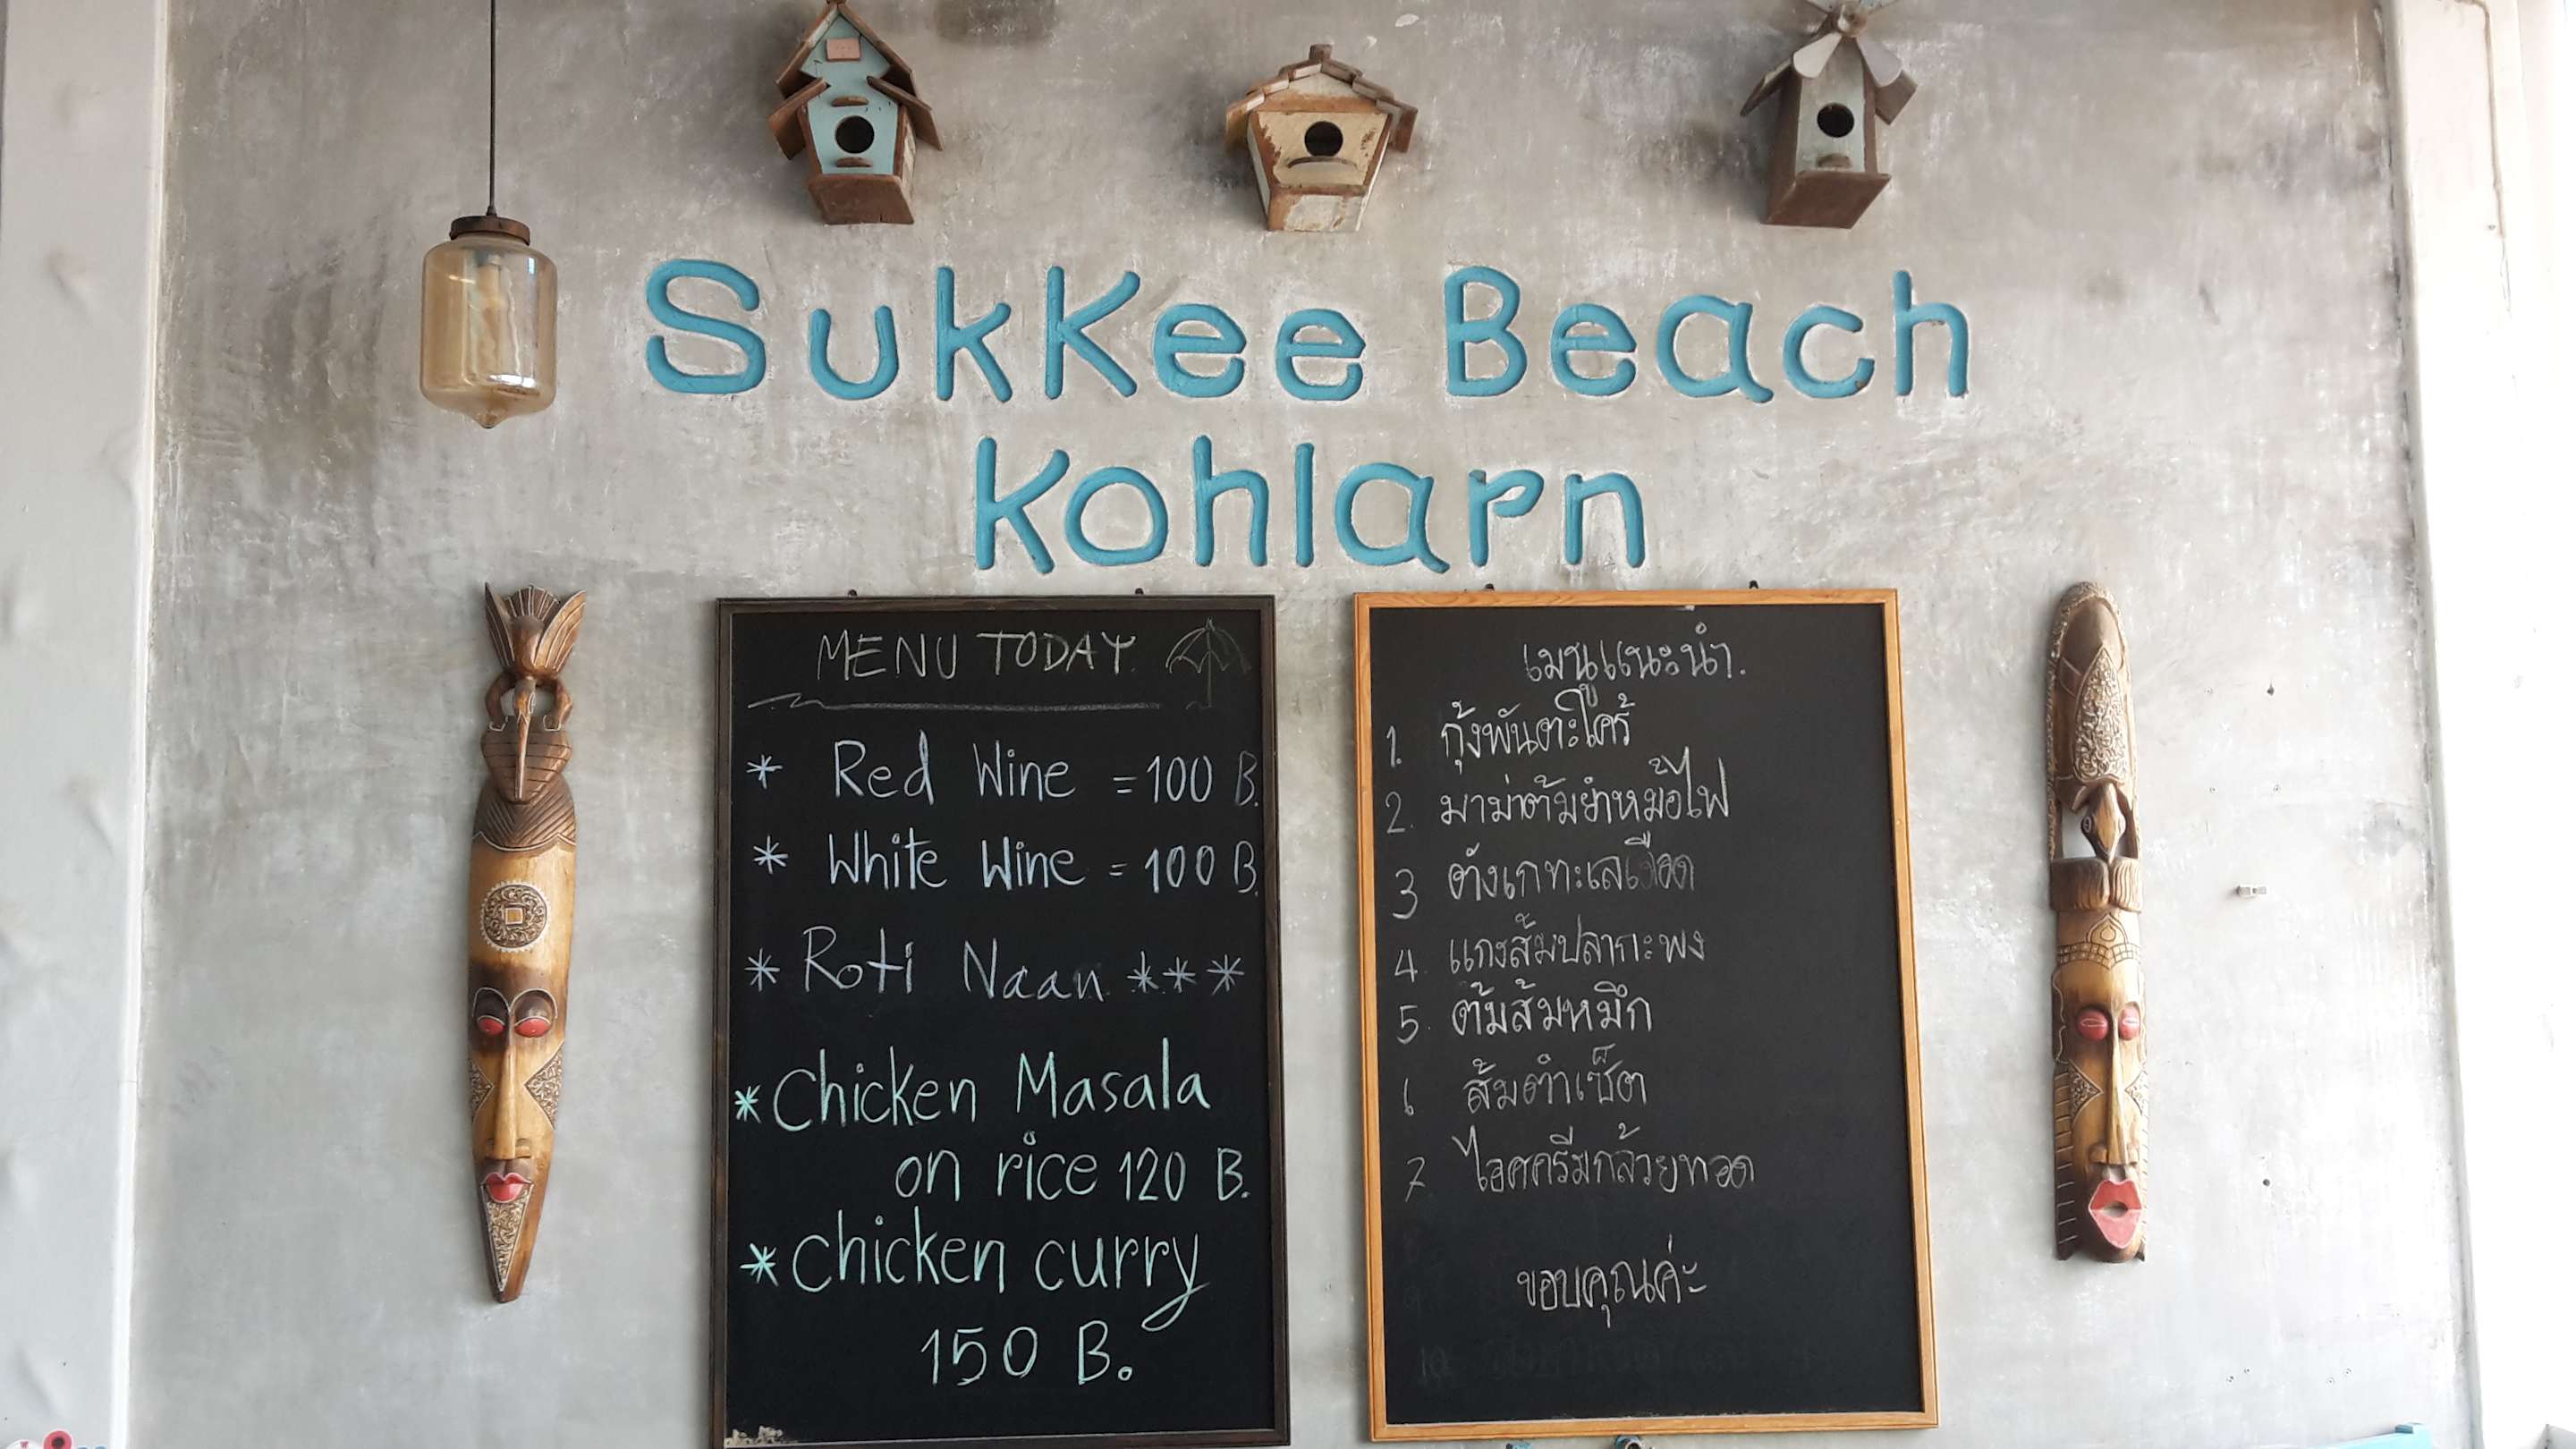 SukKee Beach
Kohlarn
MENU TODAY.
* Red Wine = 100 B.
* White Wine = 100 B.
* Roti Naan ***
* Chicken Masala
on rice 120 B.
* chicken curry
150 B.
เมนูแนะนำ.
1. กุ้งพันตะใคร้
2. มาม่าต้มยำหม้อไฟ
3 ตังเกทะเลเดือด
4. แกงส้มปลากะพง
5. ต้มส้มหมึก
6 ส้มตำเซ็ต
7 ไอศครีมกล้วยทอด
ขอบคุณค่ะ